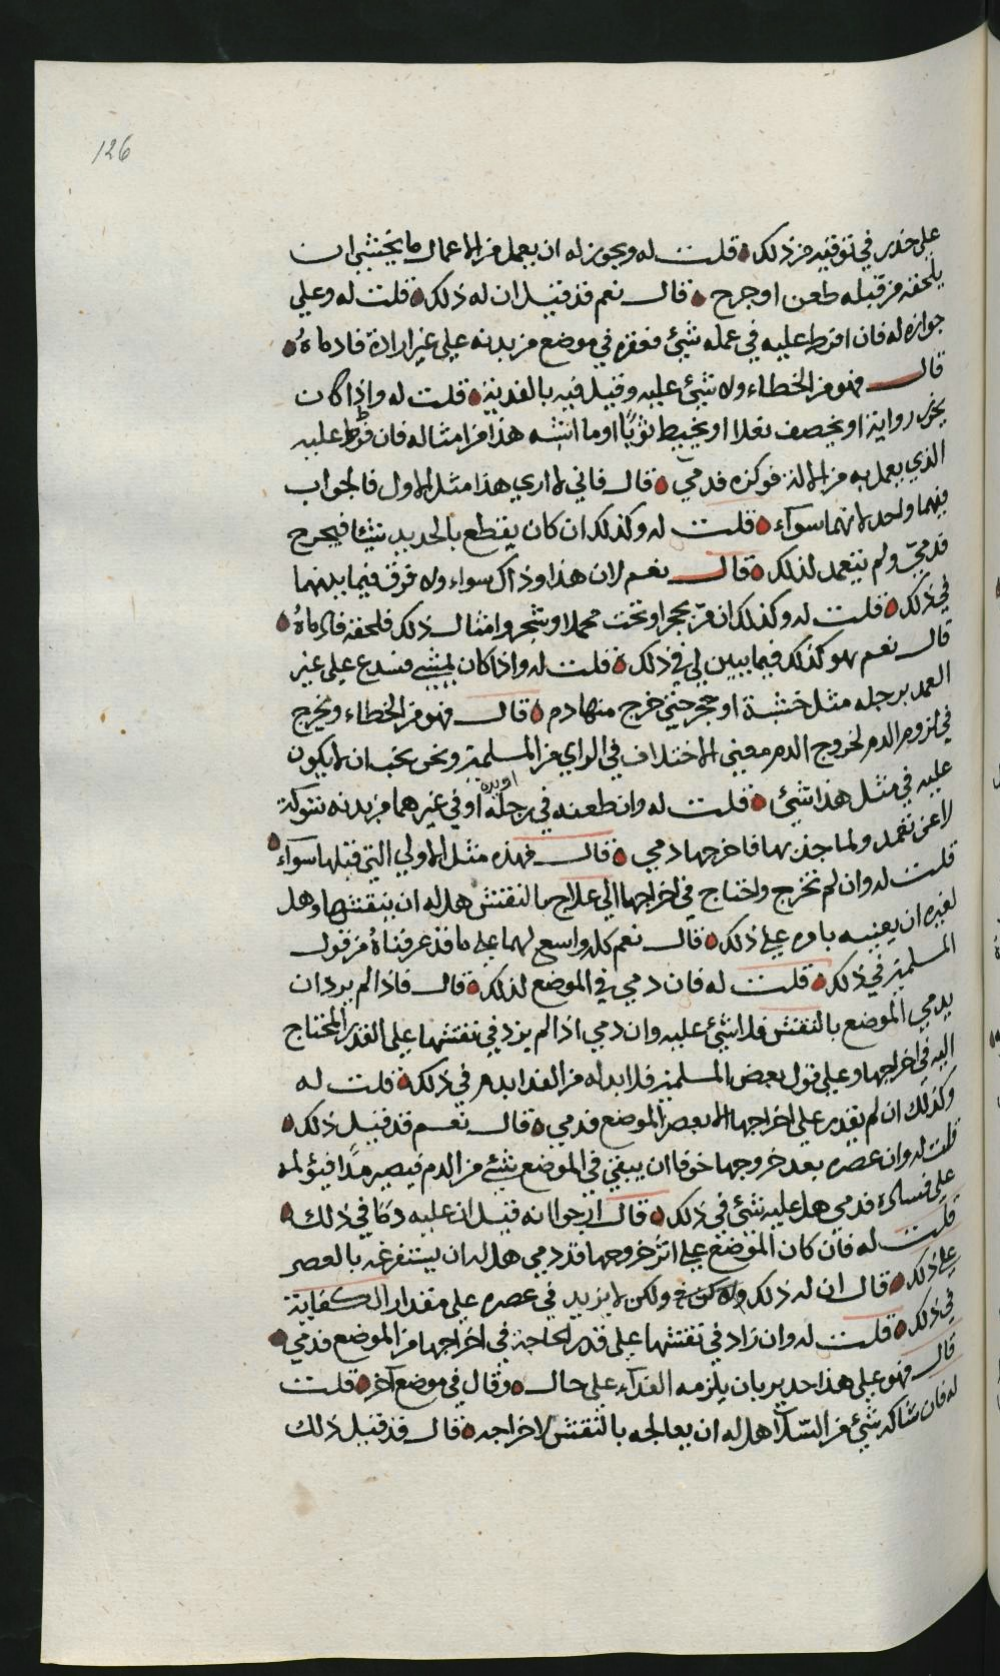 126
على حذر في توقيه من ذلك قلت له ويجوز له ان يعمل من الاعمال ما يخشى ان
يلحقه من قبله طعن او جرح قال نعم قد قيل ان له ذلك قلت له وعلى
جوازه له فان افرط عليه في عمله شيئ فعقره في موضع من بدنه على غير ارادة فادماهُ
قال فهو من الخطاء ولا شيئ عليه وقيل فيه بالفدية قلت له واذا كان
يخرز رواية او يخصف نعلا او يخيط ثوبًا او ما اشبه هذا من امثاله فان فرط عليه
الذي يعمل به من الالة فوكزه فدمي قال فاني لا اري هذا مثل الاول فالجواب
فيهما واحد لانهما سوآء قلت له وكذلك ان كان يقطع بالحديد شيئا فيجرح
فدميّ ولم يتعمد لذلك قال نعم لان هذا وذاك سواء ولا فرق فيما بينهما
في ذلك قلت له وكذلك ان مرّ بحجر او تحت محملا او شجر وامثال ذلك فلحقه فادماهُ
قال نعم هو كذلك فيما يبين لي في ذلك قلت له واذا كان يمشي فسدع على غير
العمد برجله مثل خشبة او حجر حتى خرج منها دم قال فهو من الخطاء ويخرج
في لزوم الدم لخروج الدم معنى الاختلاف في الراي من المسلمين ونحن نحب ان لا يكون
عليه في مثل هذا شيئ قلت له وان طعنه في رجله او يده او في غيرهما من بدنه شوكة
لا عن تعمد ولما جذبها فاخرجها دمي قال فهذه مثل الاولي التي قبلها سوآء
قلت له وان لم تخرج واحتاج في اخراجها الي علاجها بالنقش هل له ان ينقشها وهل
لغيره ان يعينه بامره على ذلك قال نعم كله واسع لهما على ما قد عرفناهُ من قول
المسلمين في ذلك قلت له فان دمي في الموضع لذلك قال فاذا لم يرد ان
يدمي الموضع بالنقش فلا شيئ عليه وان دمي اذا لم يزد في نقشها على القدر المحتاج
اليه في اخراجها وعلى قول بعض المسلمين فلا بد له من الفدا بدم في ذلك قلت له
وكذلك ان لم يقدر على اخراجها الا بعصر الموضع فدمي قال نعم قد قيل ذلك
قلت له وان عصره بعد خروجها خوفا ان يبقى في الموضع شيئ من الدم فيصير مدًا فيؤلمه
على فساده فدمي هل عليه شئ في ذلك قال ارجوا انه قيل ان عليه دمًا في ذلك
قلت له فان كان الموضع على اثر خروجها قد دمي هل له ان يستفرغه بالعصر
على ذلك قال ان له ذلك ولكن لا يزيد في عصره على مقدار الكفاية
في ذلك قلت له وان زاد في نقشها على قدر الحاجة في اخراجها من الموضع فدمي
قال فهو على هذا جدير بان يلزمه الفدآء على حال وقال في موضع آخر قلت
له فان شاكه شيئ من السّلا هل له ان يعالجه بالنقش لاخراجه قال قد قيل ذلك